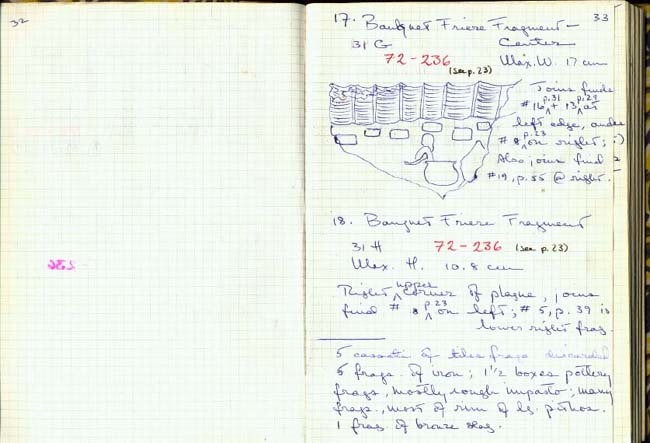 32
33
17. Banquet Frieze Fragment -
31 G Center
72-236 Max. W. 17 cm
(see p. 23)
Joins finds
#16 p.31 + 13 p.29 at
left edge, and
#8 p.23 on right;
Also joins find
#19, p. 35 @ right.
18. Banquet Frieze Fragment
31 H 72-236 (see p. 23)
Max. H. 10.8 cm
Right upper corner of plaque, joins
find # 8 p.23 on left; # 5, p. 39 is
lower right frag.
236
5 cassatte of tiles frags discarded
5 frags. of iron; 1 1/2 boxes pottery
frags, mostly rough impasto; many
frags., most of rim of lg. pithos.
1 frag of bronze slag.